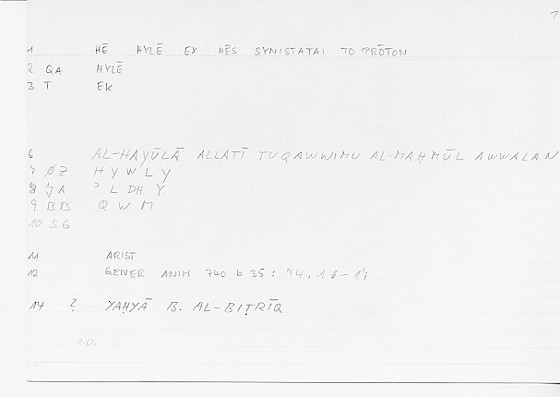 1
1 HĒ HYLĒ EX HĒS SYNISTATAI TO PRŌTON
2 QA HYLĒ
3 T EK
6 AL-HAYŪLĀ ALLATĪ TUQAWWIMU AL-MAḤMŪL AWWALAN
7 ØZ HYWLY
8 YA ᵓLDHY
9 BB QWM
10 SG
11 ARIST
12 GENER ANIM 740 b 35 : 84, 16–17
14 ? YAḤYĀ B. AL-BIṬRĪQ
S.O.